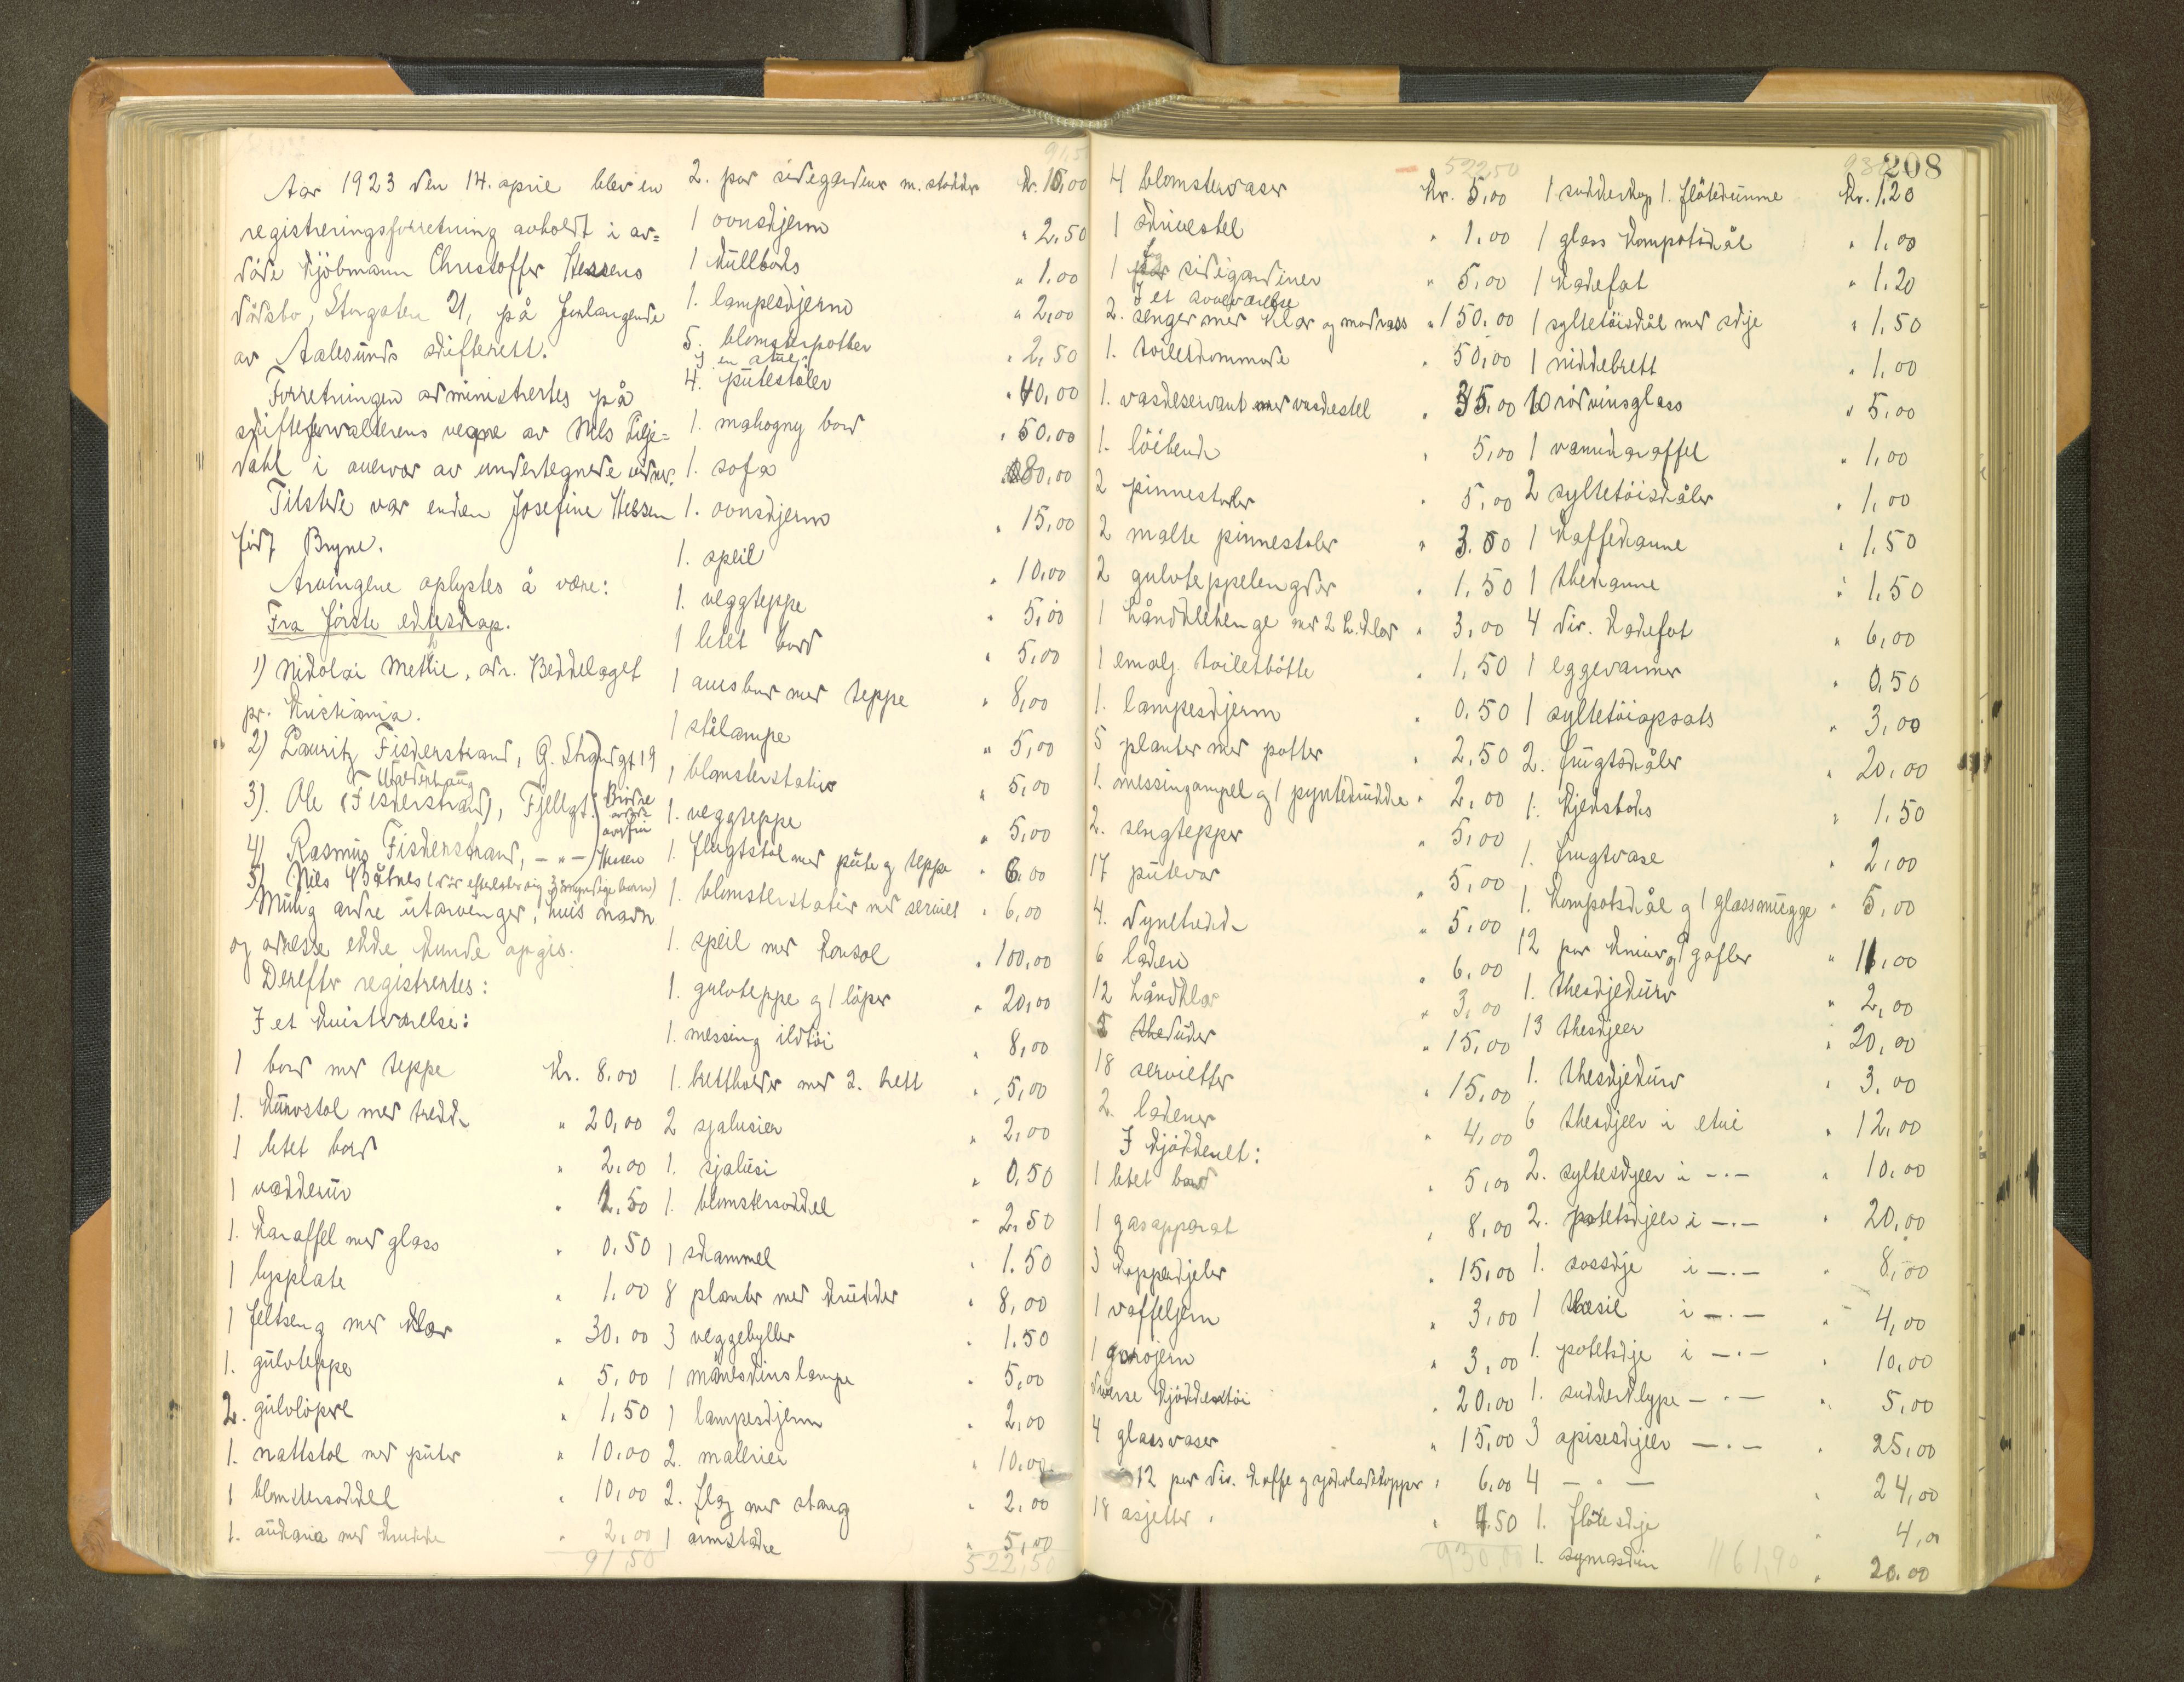 208
Aar 1923 den 14. april blev en
registreringsforretning avholdt i av=
døde kjöbmann Christoffer Hessens
dödsbo, Storgaten 21, på forlangende
av Aalesunds skifterett.
Forretningen administrertes på
skifteforvalterens vegne av Nils Lilje=
dahl i overvær av undertegnede vidner.
Tilstede var enken Josefine Hessen
född Bryne.
Arvingene oplystes å være:
Fra förste ekteskap.
1) Nikolai Methie, adr. Bekkelaget
pr. Kristiania.
2) Lauritz Fiskerstrand, G. Strandgt 19
3). Ole (Fiskerstrand), Fjellgt.
4) Rasmus Fiskerstrand, — " — Hessen
5) Nils Båtnes (dör efterlater sig 3 umyndige barn)
Mulig andre utarvinger, hvis navn
og adresse ikke kunde opgis.
Derefter registrertes:
I et kvistværelse:
1 bord med teppe Kr. 8.00
1. kurvstol med trekk " 20,00
1 litet bord " 2,00
1 vækkerur " 2,50
1. karaffel med glass " 0,50
1 lysplate " 1,00
1 feltseng med klær " 30,00
1. gulvteppe " 5,00
2. gulvlöpere " 1,50
1. nattstol med puter " 10,00
1 blomstersokkel " 10,00
1. aukaria med krukke " 2,00
91,50
2. par sidegardiner m. stokker Kr. 10,00
1 ovnskjerm " 2,50
1 kullboks " 1.00
1. lampeskjerm " 2,00
5. blomsterpotter " 2,50
I en stue:
4. putestoler " 40,00
1. mahogny bord " 50,00
1. sofa 80,00
1. ovnskjerm " 15,00
1. speil " 10,00
1. veggteppe " 5,00
1 litet bord " 5,00
1 aviisbord med teppe " 8,00
1 stålampe " 5,00
1 blomsterstativ " 5,00
1. veggteppe " 5,00
1. flugtstol med pute og teppe " 6.00
1. blomsterstativ med serviet " 6,00
1. speil med konsol " 100,00
1. gulvteppe og 1 löper " 20,00
1. messing ildtöi " 8,00
1. brettholder med 2. brett " 5,00
2 sjalusier " 2,00
1. sjalusi " 0,50
1. blomstersokkel " 2,50
1 skammel " 1.50
8 planter med krukker " 8,00
3 vegghyller " 1.50
1 måneskinslampe " 5,00
1 lampeskjerm " 2,00
2. mallerier " 10,00
2. flag med stang " 2,00
1 armstake " 5,00
522,50
522,50
4 blomstervaser Kr. 5,00
1 skrivestel " 1,00
1 fag sidegardiner " 5,00
I et soveværelse
2. senger med klær og madrass " 150,00
1. toiletkommode " 50,00
1. vaskeservant med vaskestel " 35,00
1. löibenk " 5,00
2 pinnestoler " 5,00
2 malte pinnestoler " 3.00
2 gulvteppelengder " 1,50
1 håndklehenge med 2 h.klær " 3,00
1 emalj. toiletbötte " 1,50
1. lampeskjerm " 0.50
5 planter med potter " 2,50
1. messingampel og 1 pyntekrukke " 2,00
2. sengtepper " 5,00
17 putevar " 5,00
4. dynetrekk " 5,00
6 lakener " 6,00
12 håndklær " 3,00
5 theduker " 15,00
18 servietter " 15,00
2. lakener " 4,00
I kjökkenet:
1 litet bord " 5,00
1 gasapparat " 8,00
3 kopperkjeler " 15,00
1 vaffeljern " 3,00
1 gorojern " 3,00
diverse kjökkentöi " 20,00
4 glassvaser " 15,00
12 par div. kaffe og sjokoladekopper " 6,00
18 asjetter " 4.50
930,00
1 sukkerkop 1. flötekumme Kr. 1,20
1 glass kompotskål " 1,00
1 kakefat " 1.20
1 syltetöiskål med skje " 1,50
1 nikkelbrett " 1,00
10 rödvinsglass " 5,00
1 vannkaraffel " 1,00
2 syltetöiskåler " 1,00
1 kaffekanne " 1,50
1 thekanne " 1,50
4 div. kakefat " 6,00
1 eggevarmer " 0,50
1 syltetöiopsats " 3,00
2. frugtskåler " 20,00
1. kjeksboks " 1,50
1. frugtvase " 2,00
1. kompotskål og 1 glassmugge " 5,00
12 par kniver og gafler " 11,00
1. theskjekurv " 2,00
13 theskjeer " 20,00
1. theskjekurv " 3,00
6 theskjeer i etui " 12,00
2. sylteskjeer i — " — " 10,00
2. potetskjeer i — " — " 20,00
1. sosskje i — " — " 8,00
1 thesil i — " — " 4,00
1. potetskje i — " — " 10,00
1. sukkerklype — " — " 5,00
3 spiseskjeer — " — " 25,00
4 — " — " 24,00
1. flöteskje " 4,00
1. symaskin " 20.00
1161,90